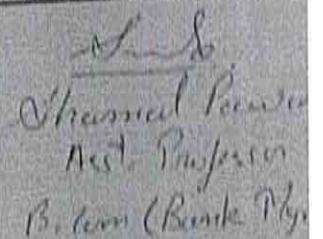 Shamal Pawa
Asst. Professor
B. Com (Bank Mg